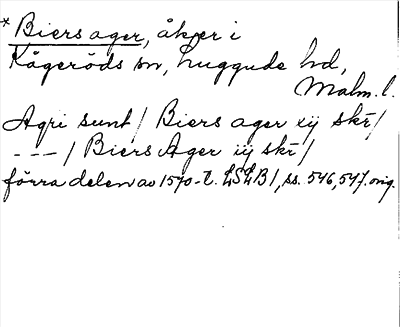 * Biers ager, åker i
Kågeröds sn, Luggude hd,
Malm. l.
Agri sunt / Biers ager xij skr̄ /
--- / Biers Ager iij skr̄ /
förra delen av 1570-t. LSLB 1, ss. 546, 547. orig.